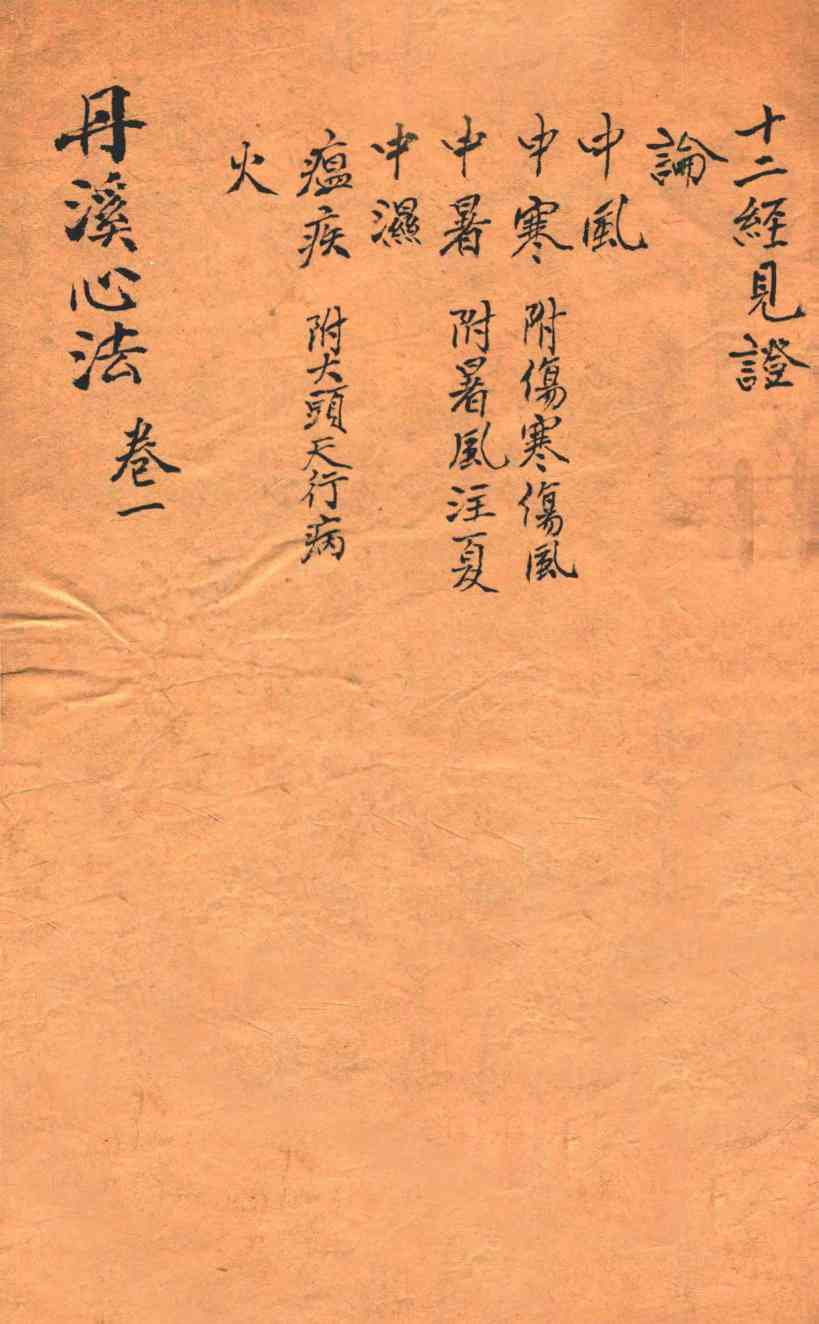 十二經見證
論
中風
中寒 附傷寒傷風
中暑 附暑風注夏
中濕
瘟疾 附大頭天行病
火
丹溪心法 卷一